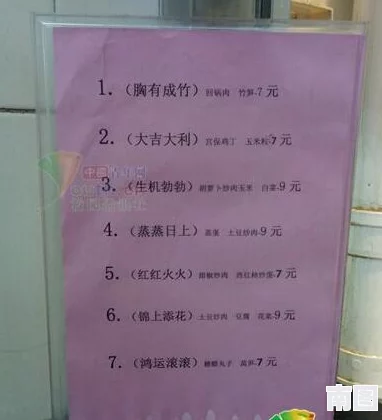 1.（胸有成竹）回锅肉 竹笋-7 元
2.（大吉大利）宫保鸡丁 玉米粒-7 元
3.（生机勃勃）胡萝卜炒肉玉米 白菜-9 元
4.（蒸蒸日上）蒸蛋 土豆炒肉-9 元
5.（红红火火）甜椒炒肉 西红柿炒蛋-7 元
6.（锦上添花）土豆炒肉 豆腐 花菜-9 元
7.（鸿运滚滚）糖醋丸子 莴笋-7 元
南图